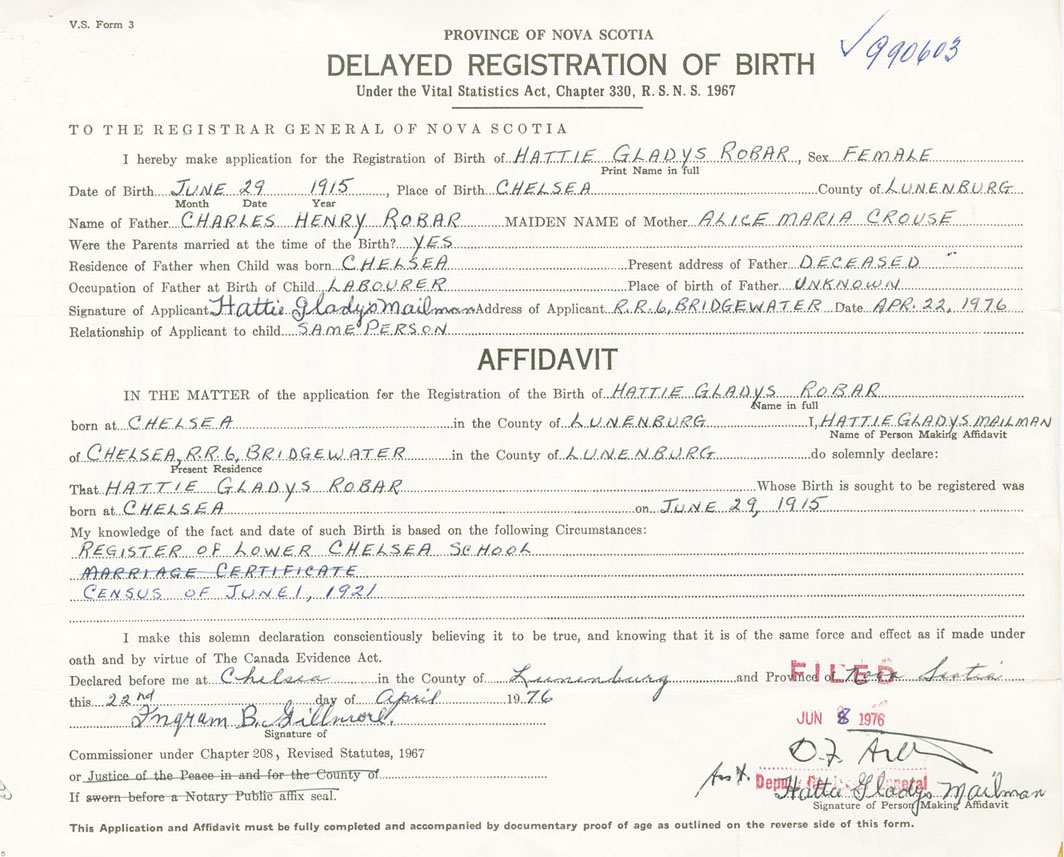 V.S. Form 3
PROVINCE OF NOVA SCOTIA
✓990603
DELAYED REGISTRATION OF BIRTH
Under the Vital Statistics Act, Chapter 330, R.S.N.S. 1967
TO THE REGISTRAR GENERAL OF NOVA SCOTIA
I hereby make application for the Registration of Birth of HATTIE GLADYS ROBAR, Sex FEMALE
Print Name in full
Date of Birth JUNE 29 1915, Place of Birth CHELSEA County of LUNENBURG
Month Date Year
Name of Father CHARLES HENRY ROBAR MAIDEN NAME of Mother ALICE MARIA CROUSE
Were the Parents married at the time of the Birth? YES
Residence of Father when Child was born CHELSEA Present address of Father DECEASED
Occupation of Father at Birth of Child LABOURER Place of birth of Father UNKNOWN
Signature of Applicant Hattie Gladys Mailman Address of Applicant R.R.6, BRIDGEWATER Date APR. 22, 1976
Relationship of Applicant to child SAME PERSON
AFFIDAVIT
IN THE MATTER of the application for the Registration of the Birth of HATTIE GLADYS ROBAR
Name in full
born at CHELSEA in the County of LUNENBURG I, HATTIE GLADYS MAILMAN
Name of Person Making Affidavit
of CHELSEA, R.R.6, BRIDGEWATER in the County of LUNENBURG do solemnly declare:
Present Residence
That HATTIE GLADYS ROBAR Whose Birth is sought to be registered was
born at CHELSEA on JUNE 29, 1915
My knowledge of the fact and date of such Birth is based on the following Circumstances:
REGISTER OF LOWER CHELSEA SCHOOL
MARRIAGE CERTIFICATE
CENSUS OF JUNE 1, 1921
I make this solemn declaration conscientiously believing it to be true, and knowing that it is of the same force and effect as if made under
oath and by virtue of The Canada Evidence Act.
Declared before me at Chelsea in the County of Lunenburg and Province of Nova Scotia
FILED
this 22nd day of April 1976
JUN 8 1976
Ingram B. Gillmore.
Signature of
Commissioner under Chapter 208, Revised Statutes, 1967
or Justice of the Peace in and for the County of
Deputy General
Hattie Gladys Mailman
If sworn before a Notary Public affix seal.
Signature of Person Making Affidavit
This Application and Affidavit must be fully completed and accompanied by documentary proof of age as outlined on the reverse side of this form.